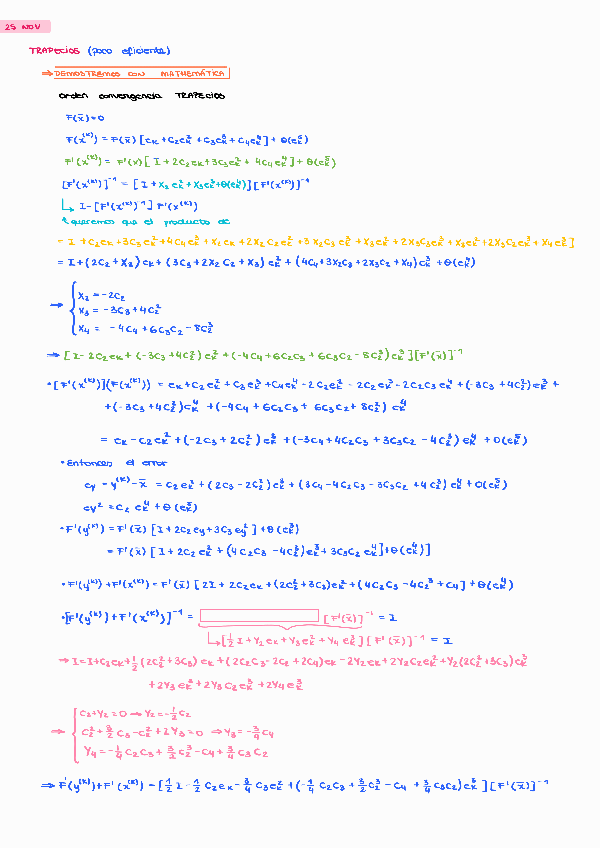 25 NOV
TRAPECIOS (poco eficiente)
⇒ DEMOSTREMOS CON MATHEMÁTICA
orden convergencia TRAPECIOS
F(x̄)=0
F(x^(k)) = F'(x̄) [e_k + C_2 e_k^2 + C_3 e_k^3 + C_4 e_k^4] + θ(e_k^5)
F'(x^(k)) = F'(x̄) [I + 2C_2 e_k + 3C_3 e_k^2 + 4C_4 e_k^3] + θ(e_k^4)
[F'(x^(k))]^-1 = [I + X_2 e_k^2 + X_3 e_k^3 + θ(e_k^4)] [F'(x^(k))]^-1
I = [F'(x^(k))^-1] F'(x^(k))
queremos que el producto de
= I + C_2 e_k + 3C_3 e_k^2 + 4C_4 e_k^3 + X_2 e_k + 2X_2 C_2 e_k^2 + 3X_2 C_3 e_k^3 + X_3 e_k^2 + 2X_3 C_3 e_k^3 + X_3 e_k^2 + 2X_3 C_2 e_k^3 + X_4 e_k^3]
= I + (2C_2 + X_2) e_k + (3C_3 + 2X_2 C_2 + X_3) e_k^2 + (4C_4 + 3X_2 C_3 + 2X_3 C_2 + X_4) e_k^3 + θ(e_k^4)
X_2 = -2C_2
→ X_3 = -3C_3 + 4C_2^2
X_4 = -4C_4 + 6C_3 C_2 - 8C_2^3
⇒ [I - 2C_2 e_k + (-3C_3 + 4C_2^2) e_k^2 + (-4C_4 + 6C_2 C_3 + 6C_3 C_2 - 8C_2^3) e_k^3] [F'(x̄)]^-1
• [F'(x^(k))] (F(x^(k))) = e_k + C_2 e_k^2 + C_3 e_k^3 + C_4 e_k^4 - 2C_2 e_k^2 - 2C_2 e_k^3 - 2C_2 C_3 e_k^4 + (-3C_3 + 4C_2^2) e_k^3 +
+ (-3C_3 + 4C_2^2) e_k^4 + (-4C_4 + 6C_2 C_3 + 6C_3 C_2 + 8C_2^3) e_k^4
= e_k - C_2 e_k^2 + (-2C_3 + 2C_2^2) e_k^3 + (-3C_4 + 4C_2 C_3 + 3C_3 C_2 - 4C_2^3) e_k^4 + O(e_k^5)
• Entonces el error
e_y = y^(k) - x̄ = C_2 e_k^2 + (2C_3 - 2C_2^2) e_k^3 + (3C_4 - 4C_2 C_3 - 3C_3 C_2 + 4C_2^3) e_k^4 + O(e_k^5)
e_y^2 = C_2 e_k^4 + θ(e_k^5)
• F'(y^(k)) = F'(x̄) [I + 2C_2 e_y + 3C_3 e_y^2] + θ(e_k^3)
= F'(x̄) [I + 2C_2 e_k^2 + (4C_2 C_3 - 4C_2^3) e_k^3 + 3C_3 C_2 e_k^4] + θ(e_k^4)]
• F'(y^(k)) + F'(x^(k)) = F'(x̄) [2I + 2C_2 e_k + (2C_2^2 + 3C_3) e_k^2 + (4C_2 C_3 - 4C_2^3 + C_4] + θ(e_k^4)
• [F'(y^(k)) + F'(x^(k))]^-1 = [F'(x̄)]^-1 = I
[1/2 I + Y_2 e_k + Y_3 e_k^2 + Y_4 e_k^3] [F'(x̄)]^-1 = I
⇒ I = I + C_2 e_k + 1/2 (2C_2^2 + 3C_3) e_k + (2C_2 C_3 - 2C_2 + 2C_4) e_k - 2Y_2 e_k + 2Y_2 C_2 e_k^2 + Y_2 (2C_2^2 + 3C_3) e_k^3
+ 2Y_3 e_k^2 + 2Y_3 C_2 e_k^3 + 2Y_4 e_k^3
C_2 + Y_2 = 0 → Y_2 = -1/2 C_2
⇒ C_2^2 + 3/2 C_3 - C_2^2 + 2Y_3 = 0 ⇒ Y_3 = -3/4 C_4
Y_4 = -1/4 C_2 C_3 + 3/2 C_2^3 - C_4 + 3/4 C_3 C_2
⇒ F'(y^(k)) + F'(x^(k)) = [1/2 I - 1/2 C_2 e_k - 3/4 C_3 e_k^2 + (-1/4 C_2 C_3 + 3/2 C_2^3 - C_4 + 3/4 C_3 C_2) e_k^3] [F'(x̄)]^-1